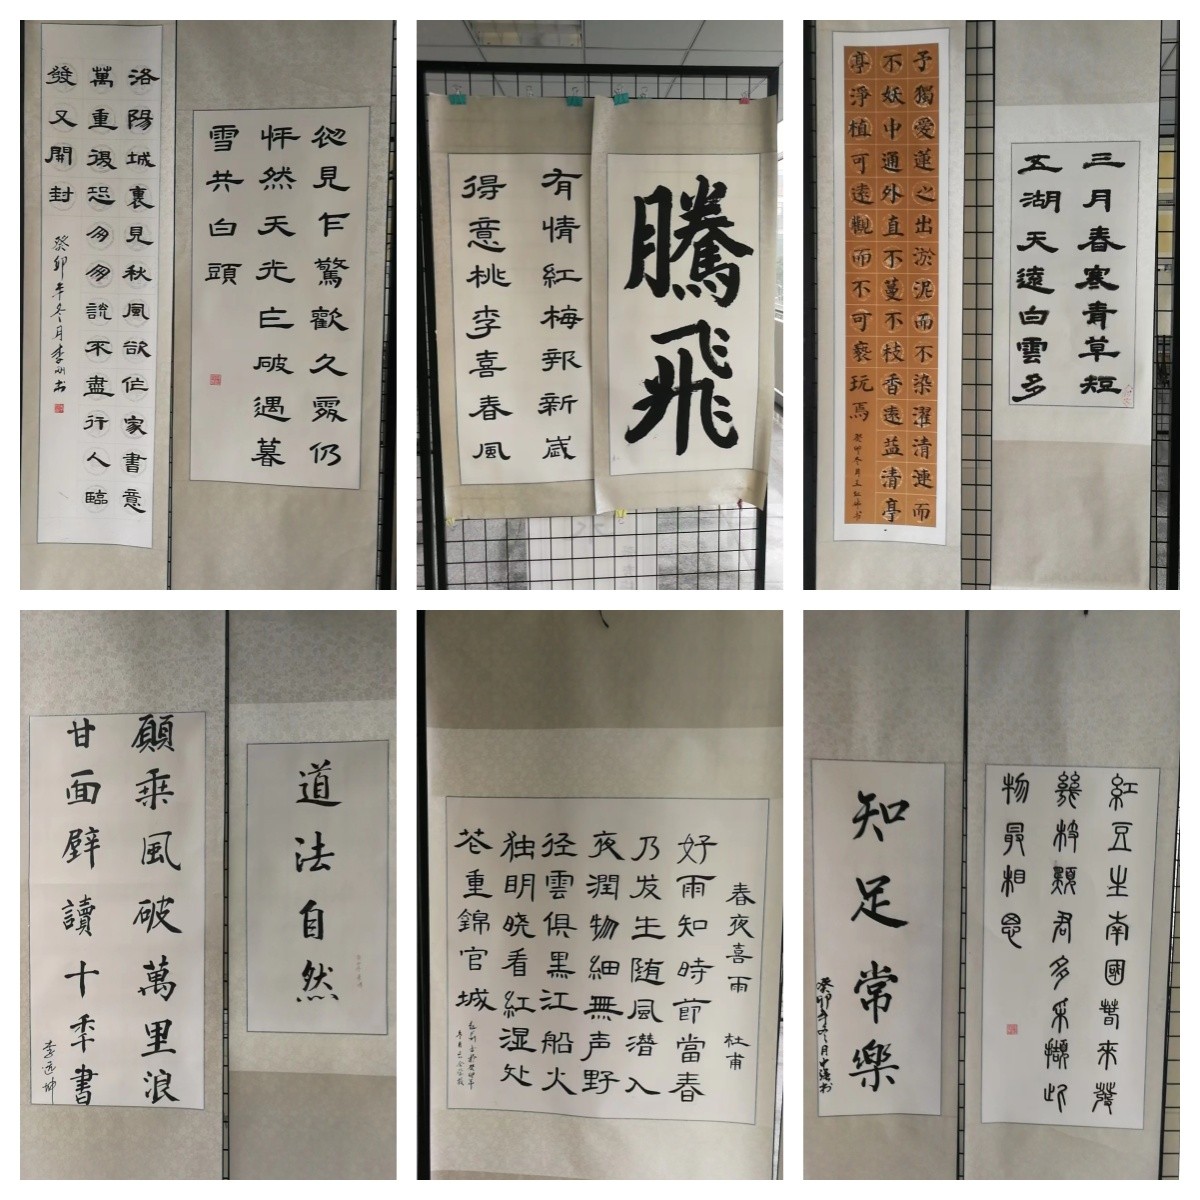 洛陽城裏見秋風欲作家書意
萬重復恐匆匆說不盡行人臨
發又開封
癸卯年冬月李刚书
初見乍驚歡久處仍
怦然天光乍破遇暮
雪共白頭
有情紅梅報新歲
得意桃李喜春風
騰飛
予獨愛蓮之出淤泥而不染濯清連而
不妖中通外直不蔓不枝香遠益清亭
亭淨植可遠觀而不可褻玩焉
癸卯冬月王红梅书
三月春寒青草短
五湖天遠白雲多
願乘風破萬里浪
甘面壁讀十年書
李远坤
道法自然
春夜喜雨 杜甫
好雨知時節當春
乃发生随風潜入
夜潤物細無声野
径雲俱黑江船火
独明晓看紅湿处
花重錦官城
知足常樂
癸卯年冬月
紅豆生南國春來發
幾枝願君多采擷此
物最相思